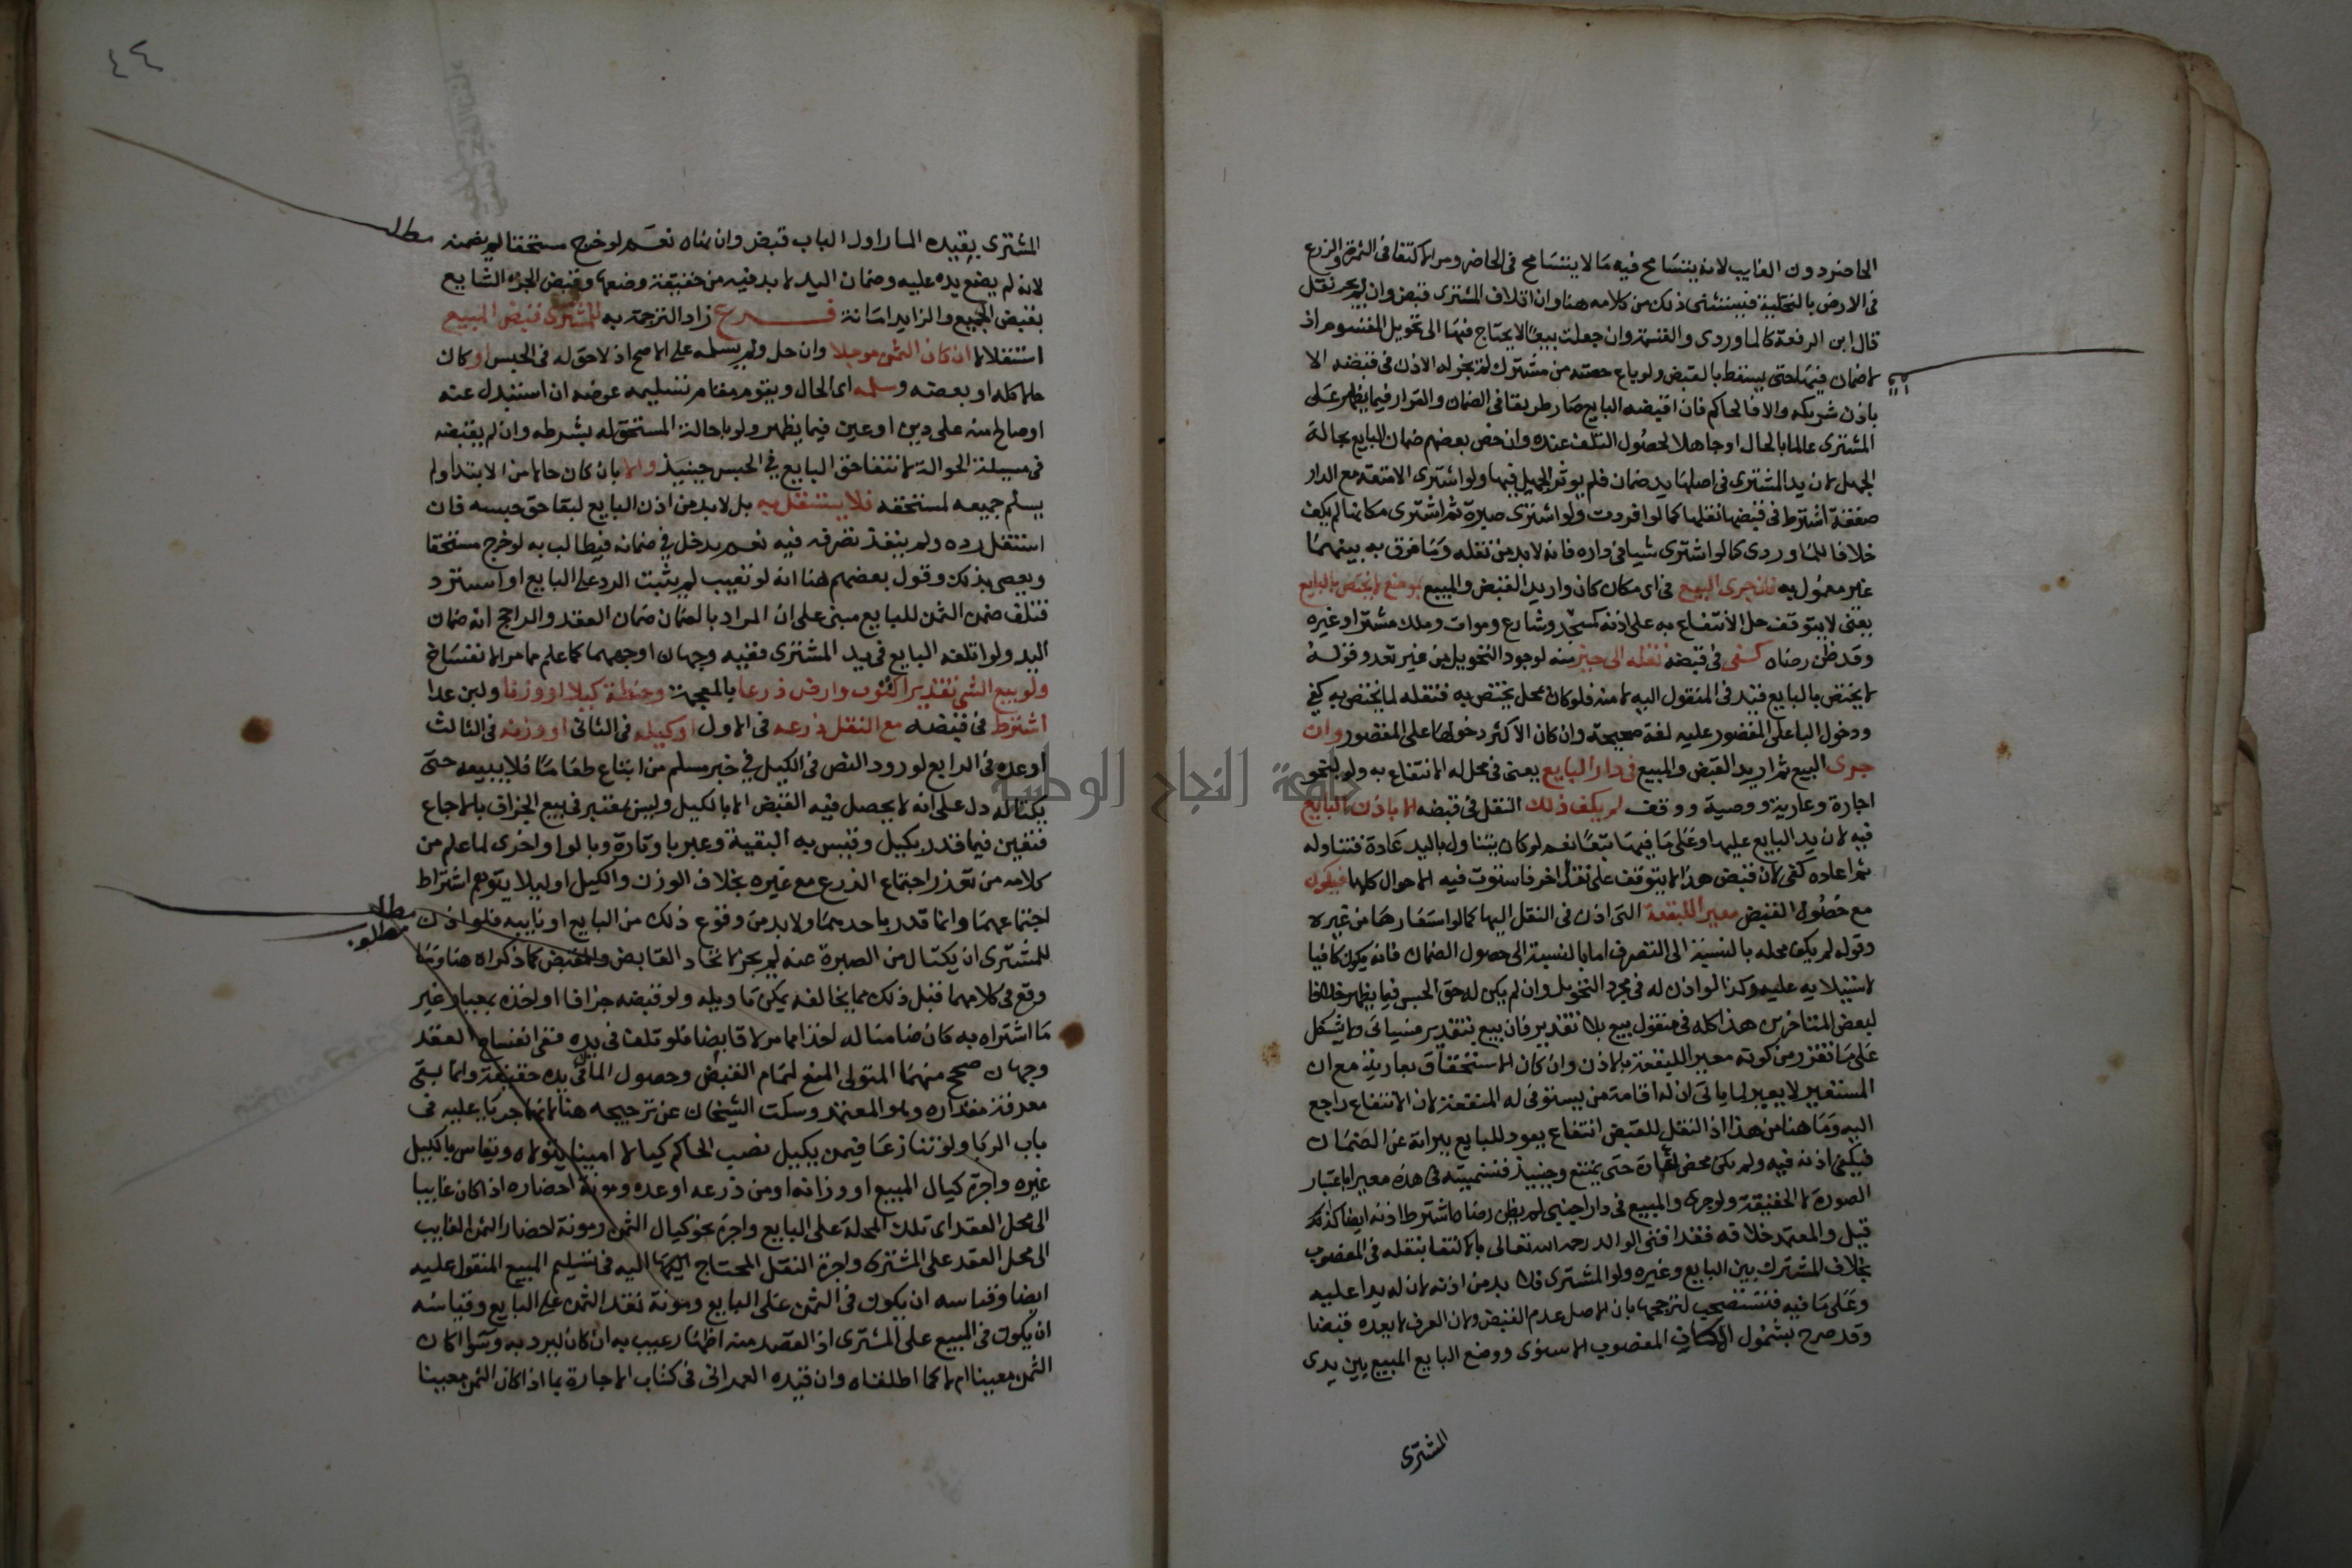 الحاضر دون الغايب لانه يتسامح فيه ما لا يتسامح فى الحاضر ومر الاكتفا فى الثمرة والزرع
فى الارض بالتخلية فيستثنى ذلك من كلامه هنا وان اتلاف المشترى قبض وان لم يجر نقل
قال ابن الرفعة كالماوردى والقسمة وان جعلت بيعا لا يحتاج فيها الى تحويل المقسوم اذ
لا ضمان فيها حتى يسقط بالقبض ولو باع حصته من مشترك لم يجز له الاذن فى قبضه الا
باذن شريكه والا فالحاكم فان اقبضه البايع صار طريقا فى الضمان والقرار فيما يظهر على
المشترى عالما بالحال او جاهلا لحصول التلف عنده وان خص بعضهم ضمان البايع بحالة
الجهل لان يد المشترى فى اصلها يد ضمان فلم يوثر الجهل فيها ولو اشترى الامتعة مع الدار
صفقة اشترط فى قبضها نقلها كما لو افردت ولو اشترى صبرة ثم اشترى مكانها لم يكف
خلافا للماوردى كما لو اشترى شيا فى داره فانه لابد من نقله وما فرق به بينهما
غير معمول به فان جرى البيع فى اى مكان كان واريد القبض والمبيع بموضع لا يختص بالبايع
يعنى لا يتوقف حل الانتفاع به على اذنه كمسجد وشارع وموات وملك مشتر او غيره
وقد ظن رضاه كفى فى قبضه نقله الى حيز منه لوجود التحويل من غير تعد وقوله
لا يختص بالبايع قيد فى المنقول اليه لا منه فلو كان بمحل يختص به فنقله لما يختص به كفى
ودخول البا على المقصور عليه لغة صحيحة وان كان الاكثر دخولها على المقصور وان
جرى البيع ثم اريد القبض والمبيع فى دار البايع يعنى فى محل له الانتفاع به ولو بنحو
اجارة وعارية ووصية ووقف لم يكف ذلك النقل فى قبضه الا باذن البايع
فيه لان يد البايع عليها وعلى ما فيها تبعا نعم لو كان يتناول باليد عادة فتناوله
ثم اعاده كفى لان قبض هذا لا يتوقف على نقل اخر فاستوت فيه الاحوال كلها فيكون
مع حصول القبض معيرا للبقعة التى اذن فى النقل اليها كما لو استعارها من غيره
وقوله لم يكف محله بالنسبة الى التصرف اما بالنسبة الى حصول الضمان فانه يكون كافيا
لاستيلايه عليه وكذا لو اذن له فى مجرد التحويل وان لم يكن له حق الحبس فيما يظهر خلافا
لبعض المتاخرين هذا كله فى منقول بيع بلا تقدير فان بيع بتقدير فسياتى ولا يشكل
على ما تقرر من كونه معيرا للبقعة بالاذن وان كان الاستحقاق بعارية مع ان
المستعير لا يعير لما ياتى ان له اقامة من يستوفى له المنفعة لان الانتفاع راجع
اليه وما هنا من هذا اذ النقل للقبض انتفاع يعود للبايع ببراته عن الضمان
فيكفى اذنه فيه ولم يكن محض اعارة حتى يمتنع وحينيذ فتسميته فى هذه معيرا باعتبار
الصورة لا الحقيقة ولو جرى والمبيع فى دار اجنبى لم يظن رضاه اشترط اذنه ايضا كذلك
قيل والمعتمد خلافه فقد افتى الوالد رحمه الله تعالى بالاكتفا بنقله فى المغصوب
بخلاف المشترك بين البايع وغيره ولو المشترى فلا بد من اذنه لان له يدا عليه
وعلى ما فيه فتستصحب لترجحها بان الاصل عدم القبض ولان العرف لا يعده قبضا
وقد صرح بشمول المغصوب الاسنوى ووضع البايع المبيع بين يدى
المشترى
٤٤
مطلب
المشترى بقيده المار اول الباب قبض وان نهاه نعم لو خرج مستحقا لم يضمنه
لانه لم يضع يده عليه وضمان اليد لا بد فيه من حقيقة وضعها وقبض الجزء الشايع
بقبض الجميع والزايد امانة فرع زاد الترجمة به للمشترى قبض المبيع
استقلالا ان كان الثمن موجلا وان حل ولم يسلمه على الاصح اذ لا حق له فى الحبس او كان
حالا كله او بعضه وسلمه اى الحال ويقوم مقام تسليمه عوضه ان استبدل عنه
او صالح منه على دين او عين فيما يظهر ولو باحالة المستحق له بشرطه وان لم يقبضه
فى مسيلة الحوالة لانتفا حق البايع فى الحبس حينيذ والا بان كان حالا من الابتدا ولم
يسلم جميعه لمستحقه فلا يستقل به بل لابد من اذن البايع لبقا حق حبسه فان
استقل رده ولم ينفذ تصرفه فيه نعم يدخل فى ضمانه فيطالب به لو خرج مستحقا
ويعصى بذلك وقول بعضهم هنا انه لو تعيب لم يثبت الرد على البايع او استرد
فتلف ضمن الثمن للبايع مبنى على ان المراد بالضمان ضمان العقد والراجح انه ضمان
اليد ولو اتلفه البايع فى يد المشترى ففيه وجهان اوجههما كما علم مما مر الانفساخ
ولو بيع الشى تقديرا كثوب وارض ذرعا بالمعجمة وحنطة كيلا او وزنا ولبن عدا
اشترط فى قبضه مع النقل ذرعه فى الاول او كيله فى الثانى او وزنه فى الثالث
او عده فى الرابع لورود النص فى الكيل فى خبر مسلم من ابتاع طعاما فلا يبيعه حتى
يكتاله دل على انه لا يحصل فيه القبض الا بالكيل وليس بمعتبر فى بيع الجزاف بالاجماع
فتعين فيما قدر بكيل وقيس به البقية وعبر باو تارة وبالواو اخرى لما علم من
كلامه من تعذر اجتماع الذرع مع غيره بخلاف الوزن والكيل او ليلا يتوهم اشتراط
مطلب
مطلوب
اجتماعهما وانما قدر باحدهما ولابد من وقوع ذلك من البايع او نايبه فلو اذن
للمشترى ان يكتال من الصبرة عنه لم يجز لاتحاد القابض والمقبض كما ذكراه هنا وما
وقع فى كلامهما قبل ذلك مما يخالفه يمكن تاويله ولو قبضه جزافا او اخذه بمعيار غير
ما اشتراه به كان ضامنا له اخذا مما مر لا قابضا فلو تلف فى يده ففى انفساخ العقد
وجهان صحح منهما المتولى المنع لتمام القبض وحصول المال فى يده حقيقة وانما بقى
معرفة مقداره وهو المعتمد وسكت الشيخان عن ترجيحه هنا لانهما جريا عليه فى
باب الربا ولو تنازعا فيمن يكيل نصب الحاكم كيالا امينا يتولاه ويقاس بالكيل
غيره واجرة كيال المبيع او وزانه او من ذرعه او عده ومونة احضاره اذا كان غايبا
الى محل العقد اى تلك المحلة على البايع واجرة نحو كيال الثمن ومونة احضار الثمن الغايب
الى محل العقد على المشترى واجرة النقل المحتاج اليه فى تسليم المبيع المنقول عليه
ايضا وقياسه ان يكون فى الثمن على البايع ومونة نقد الثمن على البايع وقياسه
ان يكون فى المبيع على المشترى اذ القصد منه اظهار عيب به ان كان ليرد به وسوا اكان
الثمن معينا ام لا كما اطلقناه وان قيده العمرانى فى كتاب الاجارة بما اذا كان الثمن معينا
جامعة النجاح الوطنية